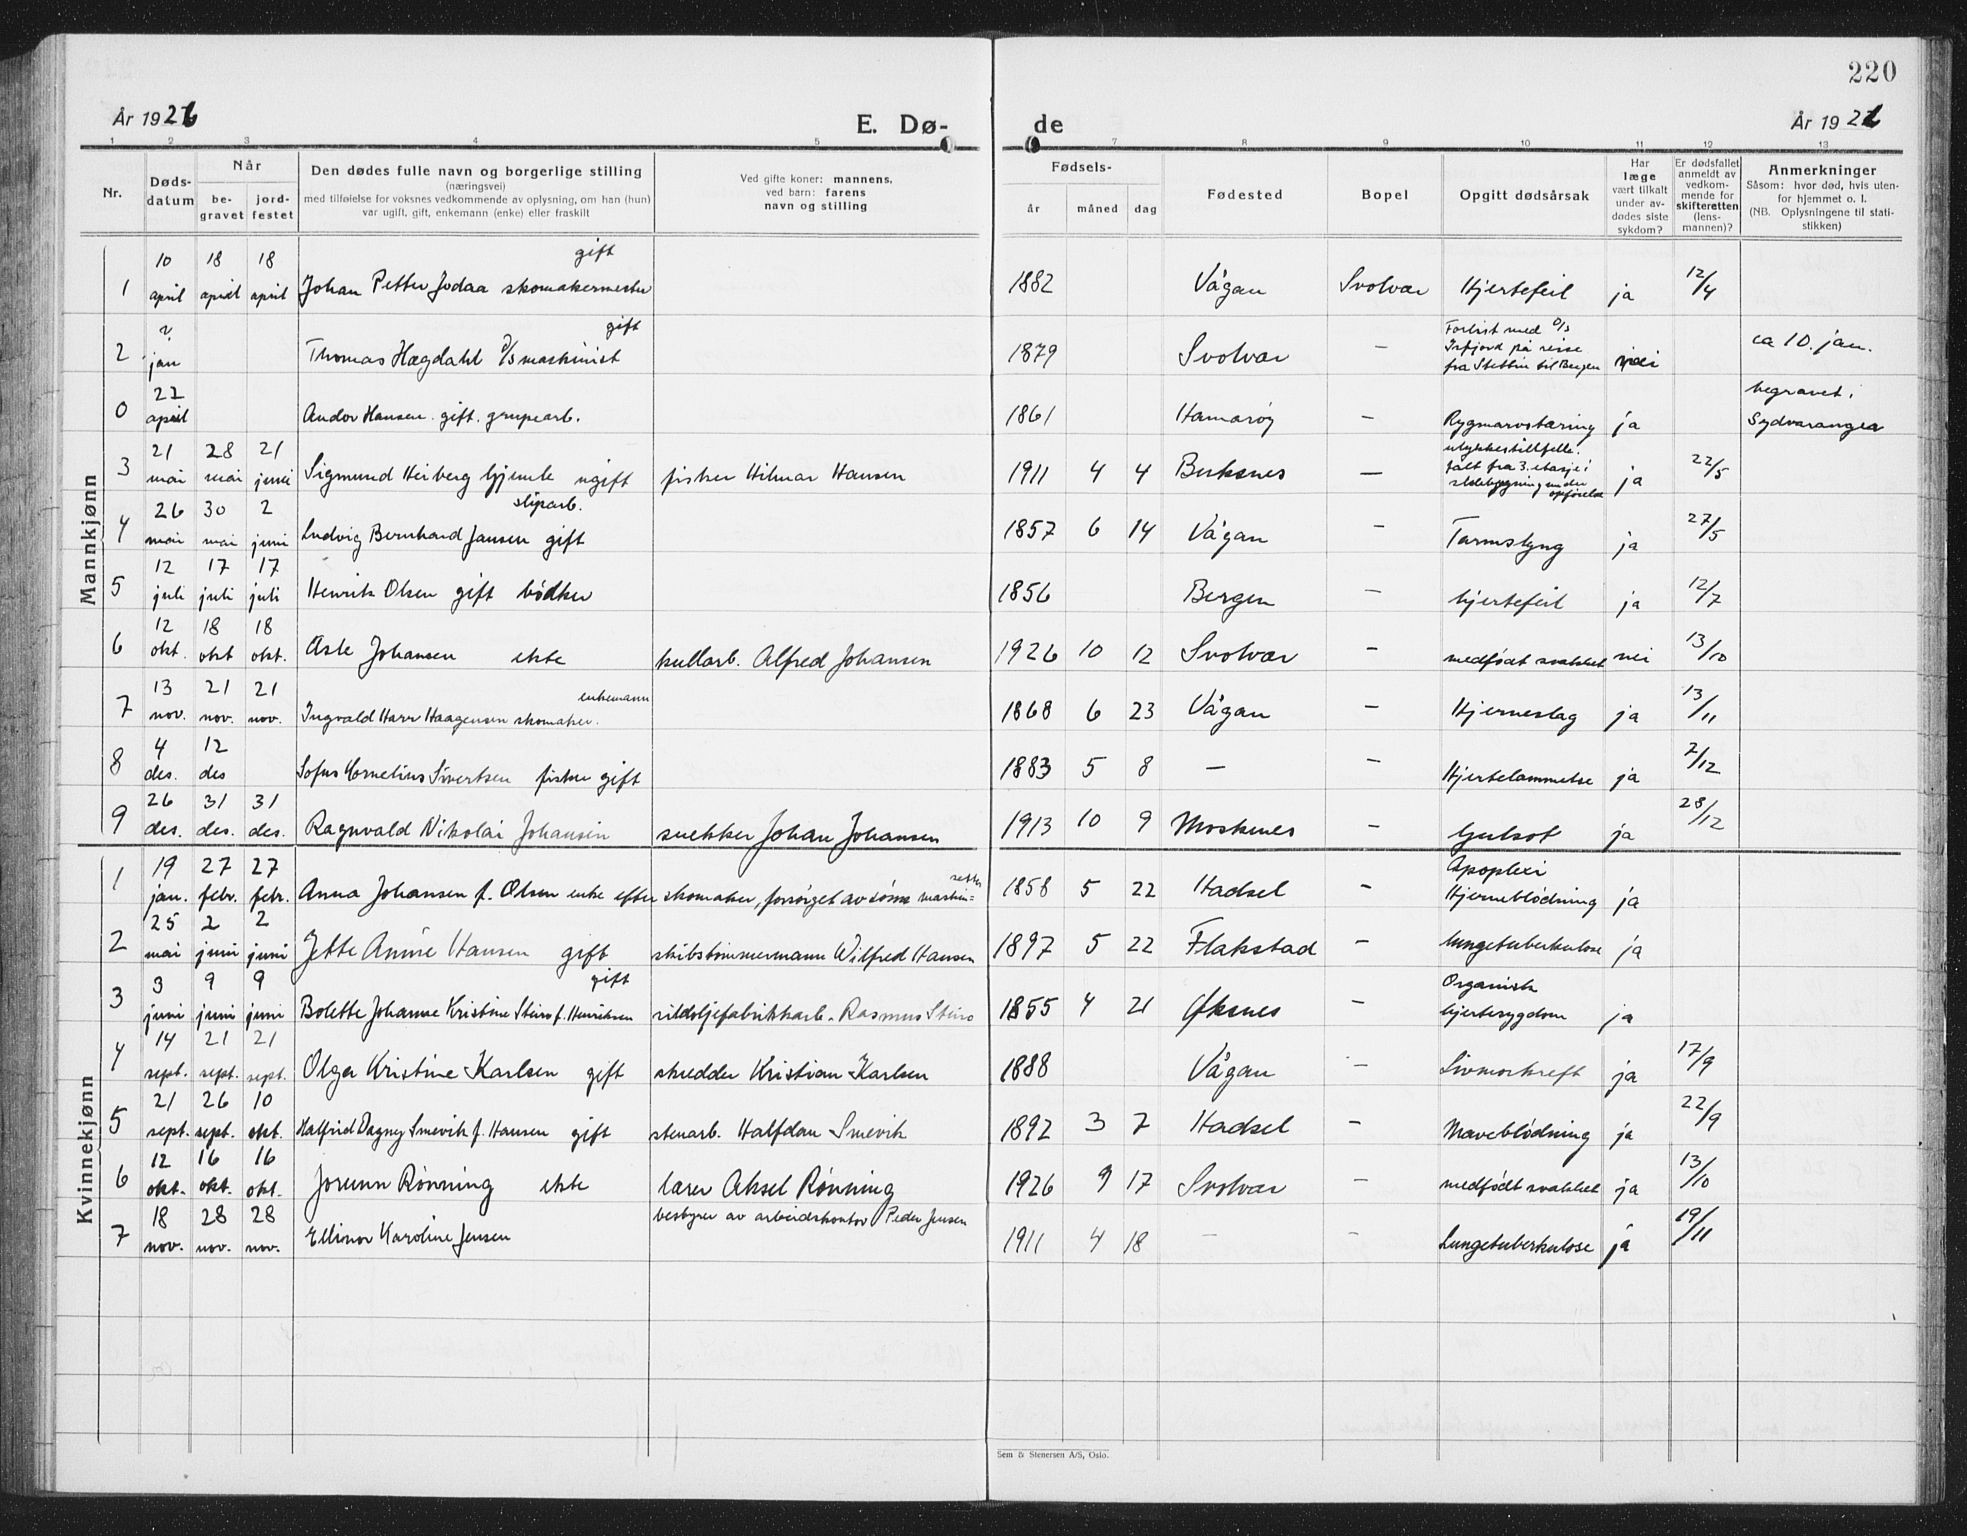 220
År 1926 E. Dø- de År 1926
1 2 3 4 5 7 8 9 10 11 12 13
Nr.
Døds-datum
Når
be-gravet
jord-festet
Den dødes fulle navn og borgerlige stilling
(næringsvei)
med tilføielse for voksnes vedkommende av oplysning, om han (hun)
var ugift, gift, enkemann (enke) eller fraskilt
Ved gifte koner: mannens,
ved barn: farens
navn og stilling
Fødsels-
år måned dag
Fødested
Bopel
Opgitt dødsårsak
Har
læge
vært tilkalt
under av-
dødes siste
sykdom?
Er dødsfallet
anmeldt av
vedkom-
mende for
skifteretten
(lens-
mannen)?
Anmerkninger
Såsom: hvor død, hvis uten-
for hjemmet o. l.
(NB. Oplysningene til stati-
stikken)
Mannkjønn
1 10 april 18 april 18 april Johan Petter Jodaa skomakermester gift 1882 Vågan Svolvær Hjertefeil ja 12/4
2 ? jan Thomas Hægdahl D/S maskinist gift 1879 Svolvær – Forlist med D/S Isfjord på reise fra Stettin til Bergen nei ca 10. jan.
0 22 april Andor Hansen gift. grupearb. 1861 Hamarøy – Rygmarvstæring ja begravet i Sydvaranger
3 21 mai 28 mai 21 juni Sigmund Heiberg ugift fisker Hilmar Hansen 1911 4 4 Buksnes – ulykkestilfelle. falt fra 3. etasje i under opførelse ja 22/5
4 26 mai 30 mai 2 juni Ludvig Bernhard Jansen gift sliparb. 1857 6 14 Vågan – Tarmslyng ja 27/5
5 12 juli 17 juli 17 juli Henrik Olsen gift bødker 1856 Bergen – hjertefeil ja 12/7
6 12 okt. 18 okt 18 okt. Asle Johansen ekte kullarb. Alfred Johansen 1926 10 12 Svolvær – medfødt svakhet nei 13/10
7 13 nov. 21 nov. 21 nov. Ingvald Harr Haagensen skomaker. enkemann 1868 6 23 Vågan – Hjerneslag ja 13/11
8 4 des. 12 des Sofus Cornelius Sivertsen fisker gift 1883 5 8 – – Hjertelammelse ja 7/12
9 26 des. 31 des. 31 des. Ragnvald Nikolai Johansen snekker Johan Johansen 1913 10 9 Moskenes – Gulsot ja 28/12
Kvinnekjønn
1 19 jan. 27 febr. 27 febr. Anna Johansen f. Olsen enke efter skomaker, forsørget av sønn maskin= 1858 5 22 Hadsel – Apoplexi Hjerneblødning ja
2 25 mai 2 juni 2 juni Jette Amine Hansen gift skibstømmermann Wilfred Hansen 1897 5 22 Flakstad – lungetuberkulose ja
3 3 juni 9 juni 9 juni Bolette Johanne Kristine Steiro f. Henriksen gift sildoljefabrikkarb. Rasmus Steiro 1855 4 21 Øksnes – Organisk hjertesygdom ja
4 14 sept. 21 sept. 21 sept. Olga Kristine Karlsen gift skredder Kristian Karlsen 1888 Vågan – Livmorkreft ja 17/9
5 21 sept. 26 sept. 10 okt. Halfrid Dagny Smevik f. Hansen gift stenarb. Halfdan Smevik 1892 3 7 Hadsel – Maveblødning ja 22/9
6 12 okt. 16 okt. 16 okt. Jorunn Rønning ekte lærer Aksel Rønning 1926 9 17 Svolvær – medfødt svakhet ja 13/10
7 18 nov. 28 nov. 28 nov. Ellinor Karoline Jensen bestyrer av arbeidskontor Peder Jensen 1911 4 18 – – Lungetuberkulose ja 19/11
Sem & Stenersen A/S, Oslo.